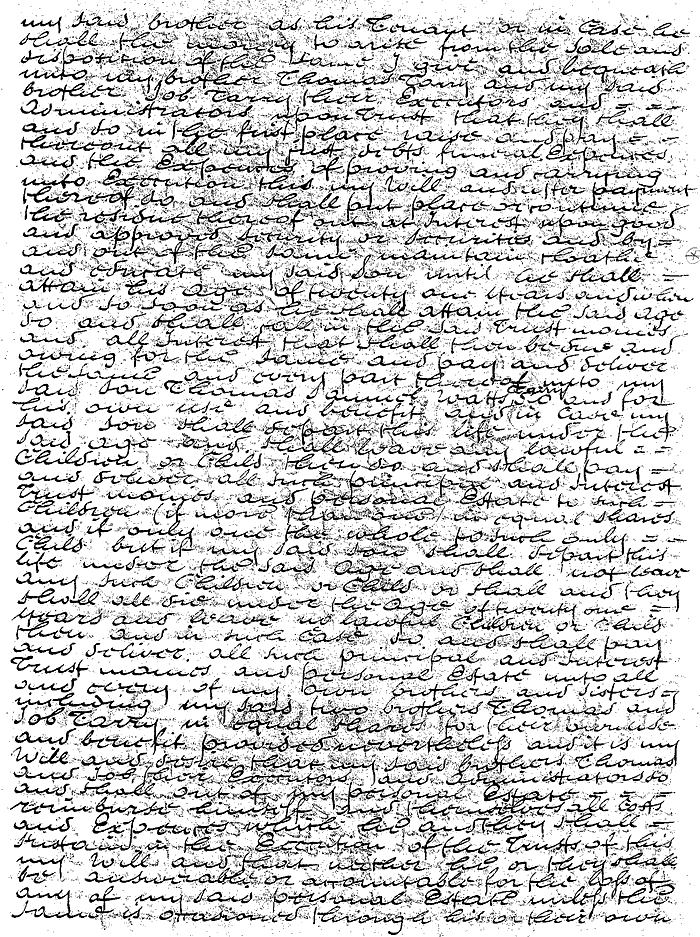 my said brother as his Tenant or in Case he
shall the moneys to arise from the sale and
disposition of the same I give and bequeath
unto my brother Thomas Tarry and my said
brother Job Tarry their Executors and = = =
Administrators upon trust that they shall
and do in the first place raise and pay = =
thereout all my just debts funeral Expences
and the Expences of proving and carrying
unto Execution this my Will and after payment
thereof do and shall put place or continue
the residue thereof out at Interest upon good
and approved security or securities and by =
and out of the same maintain cloathe
and educate my said Son until he shall =
attain his age of twenty one Years and when
and so soon as he shall attain the said age
do and shall call in the said Trust monies
and all interest that shall then be due and
owing for the same and pay and deliver
the same and every part thereof unto my
said son Thomas Samuel Watts Tarry to and for
his own use and benefit and in Case my
said son shall depart this life under the
said age and shall leave any lawful = =
Children or Child then do and shall pay =
and deliver all such principal and interest
Trust monies and personal Estate to such =
Children (if more than one) in equal shares
and if only one the whole to such only = =
Child but if my said son shall depart this
life under the said age and shall not leave
any such Children or Child or shall and they
shall all die under the age of twenty one =
Years and leave no lawful Children or Child
then and in such Case do and shall pay
and deliver all such principal and Interest
Trust monies and personal Estate unto all
and every of my own brothers and sisters
including my said two brothers Thomas and
Job Tarry in equal shares for their own use
and benefit provided nevertheless and it is my
Will and desire that my said brothers Thomas
and Job their Executors and Administrators do
and shall out of my personal Estate = = =
reimburse himself and themselves all Costs
and Expences which he and they shall =
sustain in the Execution of the Trusts of this
my Will and that neither he or they shall
be answerable or accountable for the loss of
any of my said personal Estate unless the
same is occasioned through his or their own